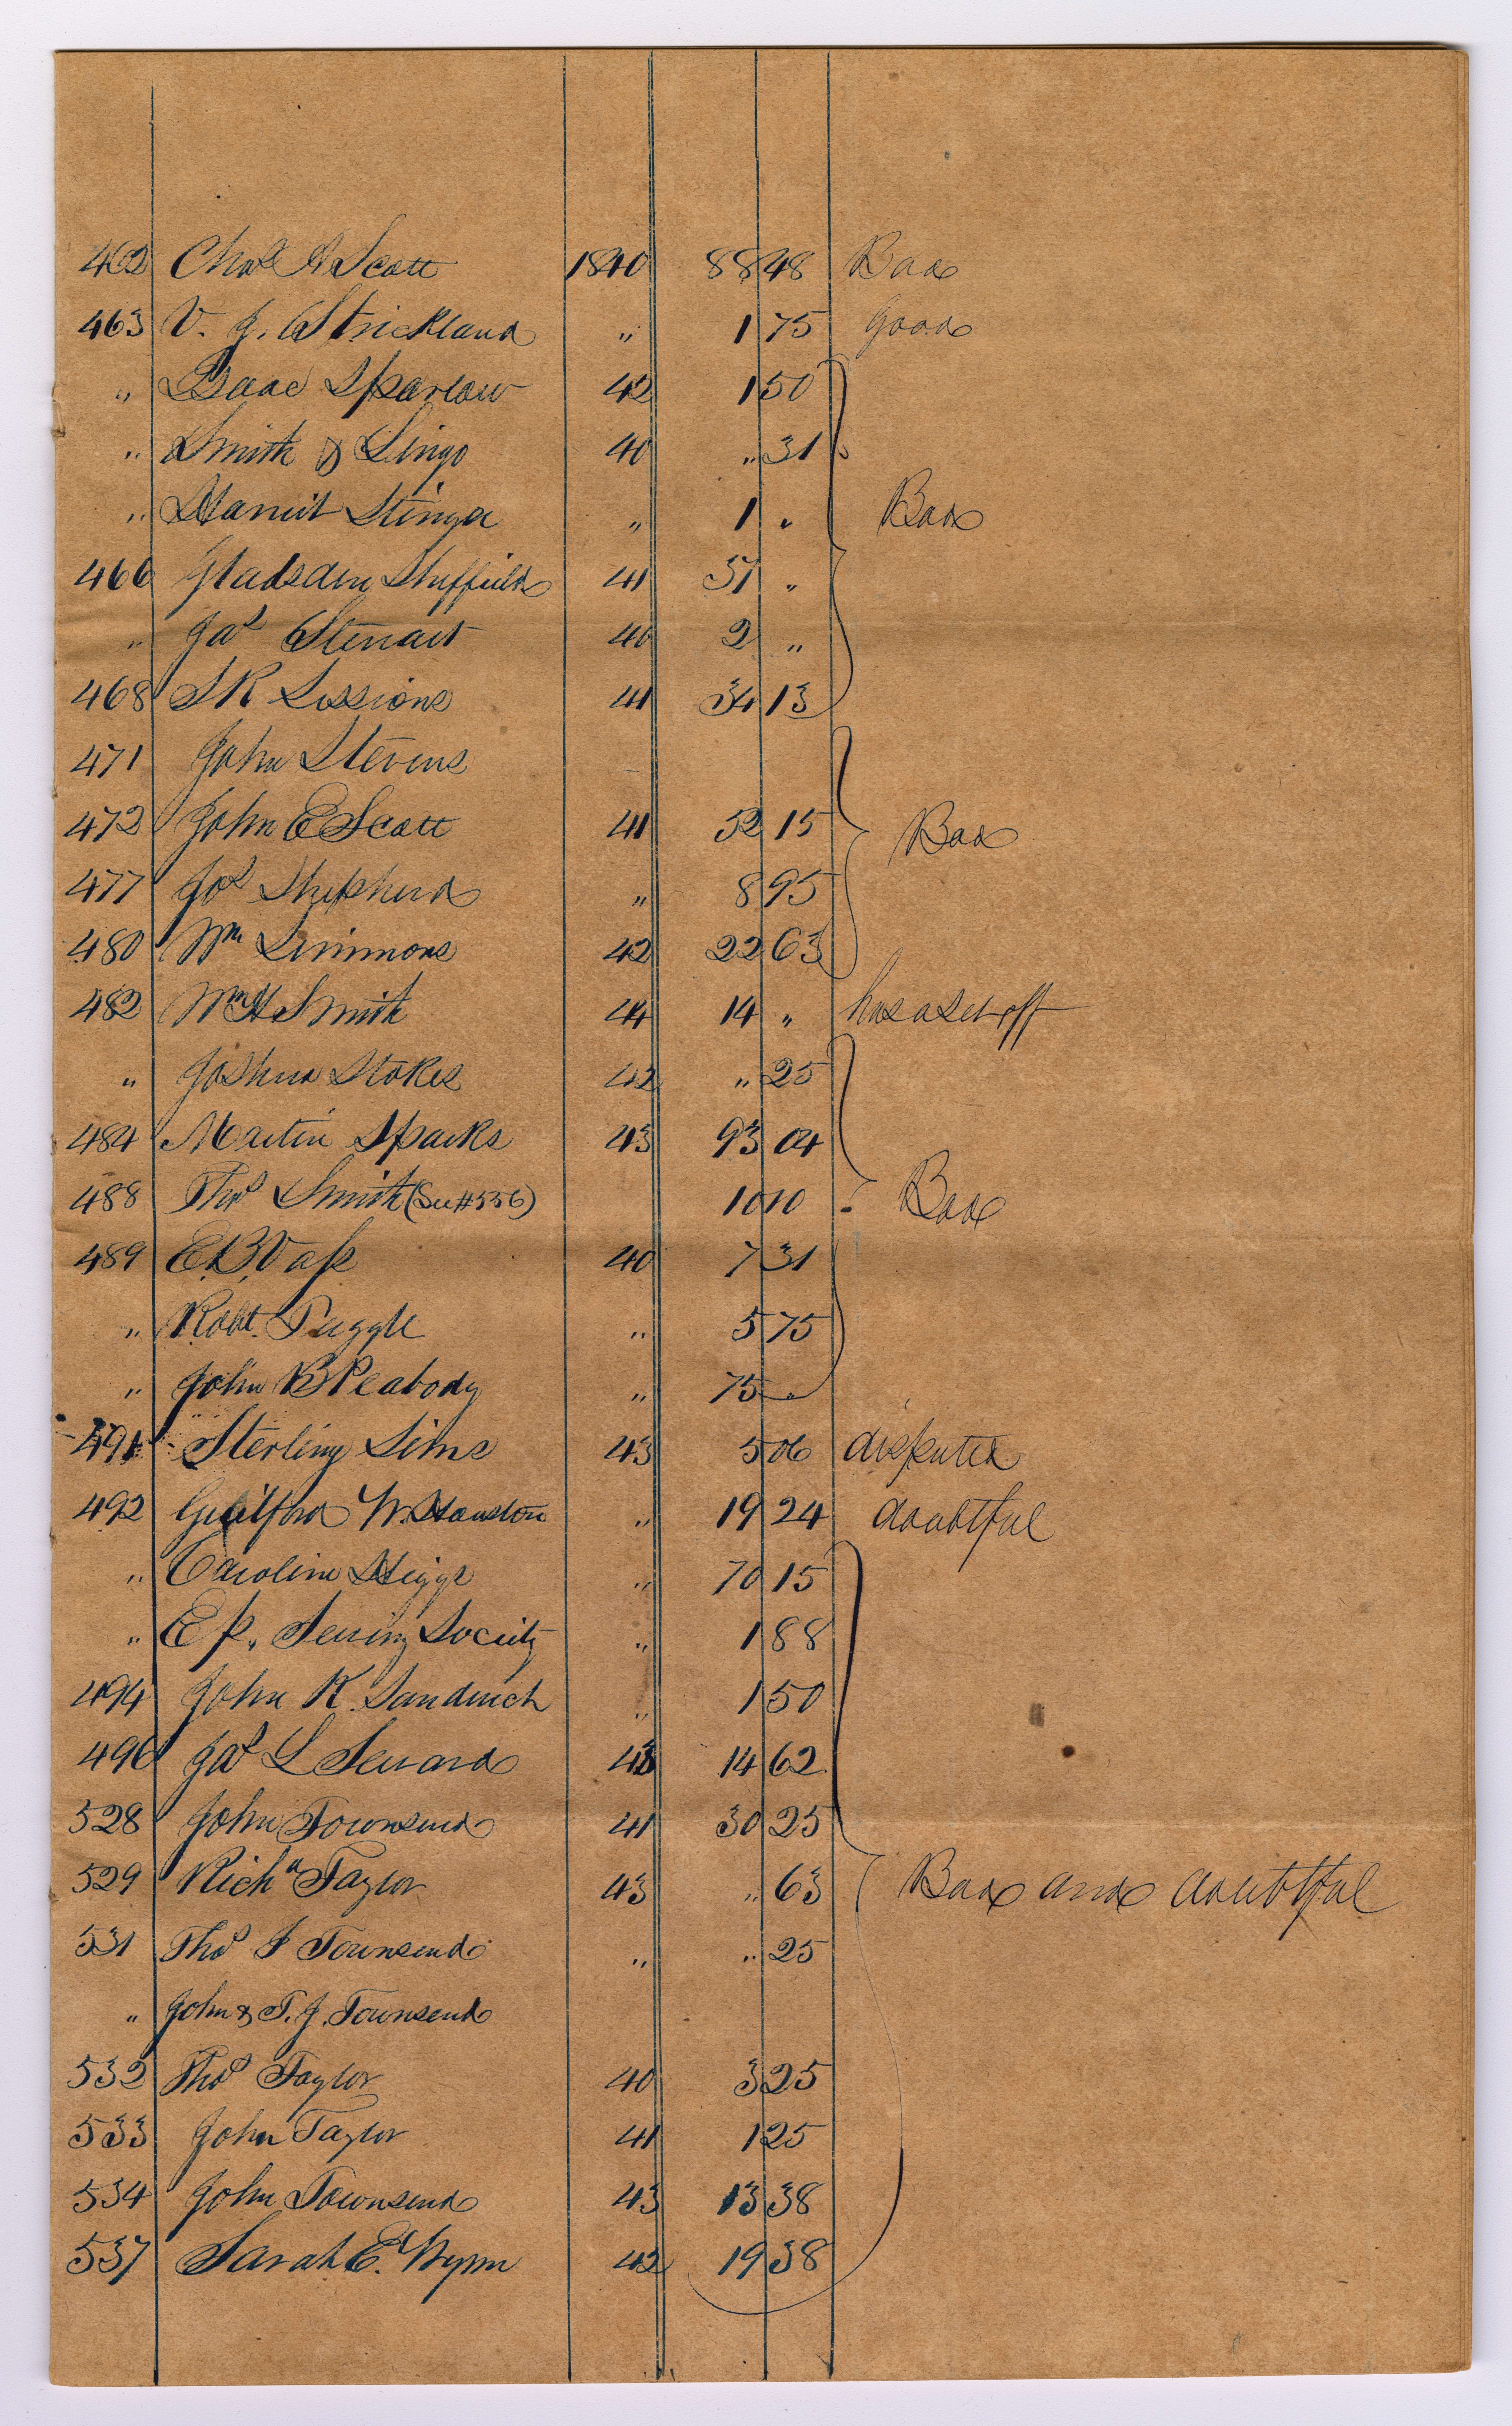 462 Chas A Scott 1840 88 48 Bad
463 V. J. Strickland " 1 75 Good
" Isaac Sparlow 42 1 50
" Smith & Lingo 40 " 31
" Harriet Stinger " 1 " Bad
466 Gladsden Sheffield 41 51 "
" Jas Stewart 40 2 "
468 S R Sessions 41 34 13
471 John Stevens
472 John E Scott 41 52 15 Bad
477 Jos Shepherd " 8 95
480 Wm Simmons 42 22 63
482 Wm H Smith 44 14 " has a set off
" Joshua Stokes 42 " 25
484 Martin Sparks 43 93 04
488 Thos Smith (See #536) 10 10 Bad
489 E. B. Vass 40 7 31
" Robt. Tuggle " 5 75
" John B Peabody " 75 "
491 Sterling Sims 43 5 06 disputed
492 Guilford W. Houston " 19 24 doubtful
" Caroline Higgs " 70 15
" Ep. Sewing Society " 1 88
494 John K. Sandwich " 1 50
496 Jas L Seward 43 14 62
528 John Townsend 41 30 25
529 Richd Taylor 43 " 63 Bad and doubtful
531 Thos J Townsend " " 25
" John & T. J. Townsend
532 Thos Taylor 40 3 25
533 John Taylor 41 1 25
534 John Townsend 43 13 38
537 Sarah E. Wynn 42 19 38